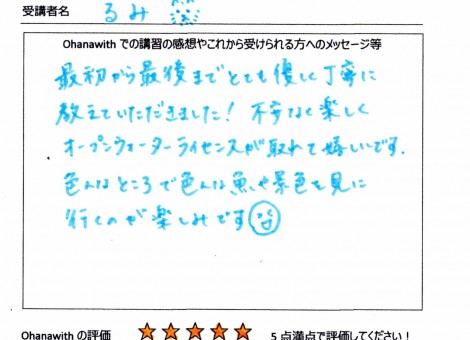 受講者名 るみ
Ohanawith での講習の感想やこれから受けられる方へのメッセージ等
最初から最後までとても優しく丁寧に
教えていただきました！不安なく楽しく
オープンウォーターライセンスが取れて嬉しいです.
色んなところで色んな魚や景色を見に
行くのが楽しみです
Ohanawith の評価 ★★★★★ 5 点満点で評価してください！